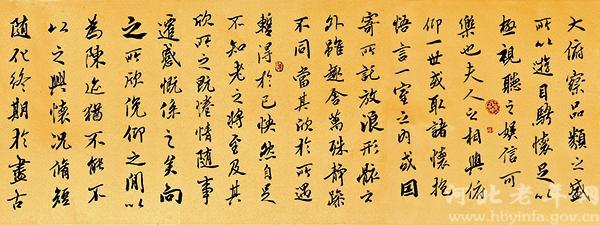 大俯察品類之盛
所以遊目騁懷足以
極視聽之娛信可
樂也夫人之相與俯
仰一世或取諸懷抱
悟言一室之內或因
寄所託放浪形骸之
外雖趣舍萬殊靜躁
不同當其欣於所遇
暫得於己快然自足
不知老之將至及其
所之既惓情隨事
遷感慨係之矣向
之所欣俛仰之閒以
為陳迹猶不能不
以之興懷況脩短
隨化終期於盡古
河北老年网
www.hbyinfa.gov.cn